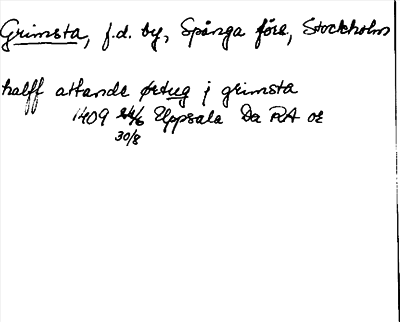 Grimsta, f.d. by, Spånga förs, Stockholms
halff attande ørtug j grimsta
1409 Uppsala Da RA or
30/8